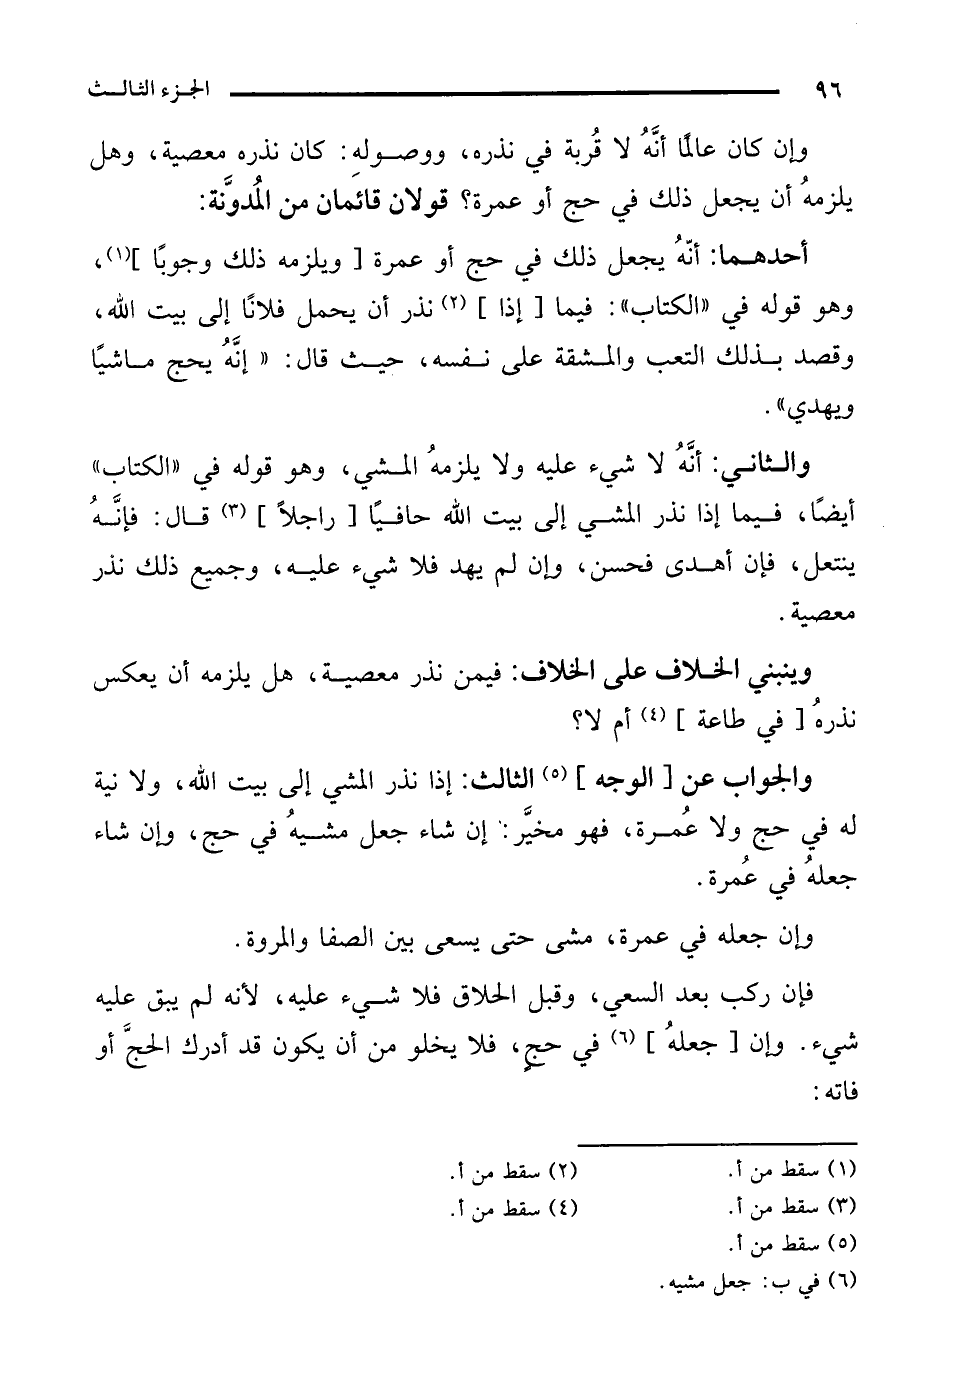 ٩٦ الجزء الثالث
وإن كان عالمًا أنَّهُ لا قُربة في نذره، ووصوله: كان نذره معصية، وهل
يلزمهُ أن يجعل ذلك في حج أو عمرة؟ قولان قائمان من المُدوَّنة:
أحدهما: أنّهُ يجعل ذلك في حج أو عمرة [ ويلزمه ذلك وجوبًا ](١)،
وهو قوله في «الكتاب»: فيما [ إذا ] (٢) نذر أن يحمل فلانًا إلى بيت الله،
وقصد بذلك التعب والمشقة على نفسه، حيث قال: « إنَّهُ يحج ماشيًا
ويهدي».
والثاني: أنَّهُ لا شيء عليه ولا يلزمهُ المشي، وهو قوله في «الكتاب»
أيضًا، فيما إذا نذر المشي إلى بيت الله حافيًا [ راجلاً ] (٣) قال: فإنَّهُ
ينتعل، فإن أهدى فحسن، وإن لم يهد فلا شيء عليه، وجميع ذلك نذر
معصية.
وينبني الخلاف على الخلاف: فيمن نذر معصية، هل يلزمه أن يعكس
نذرهُ [ في طاعة ] (٤) أم لا؟
والجواب عن [ الوجه ] (٥) الثالث: إذا نذر المشي إلى بيت الله، ولا نية
له في حج ولا عُمرة، فهو مخيَّر: إن شاء جعل مشيهُ في حج، وإن شاء
جعلهُ في عُمرة.
وإن جعله في عمرة، مشى حتى يسعى بين الصفا والمروة.
فإن ركب بعد السعي، وقبل الحلاق فلا شيء عليه، لأنه لم يبق عليه
شيء. وإن [ جعلهُ ] (٦) في حجٍ، فلا يخلو من أن يكون قد أدرك الحجَّ أو
فاته:
(١) سقط من أ. (٢) سقط من أ.
(٣) سقط من أ. (٤) سقط من أ.
(٥) سقط من أ.
(٦) في ب: جعل مشيه.